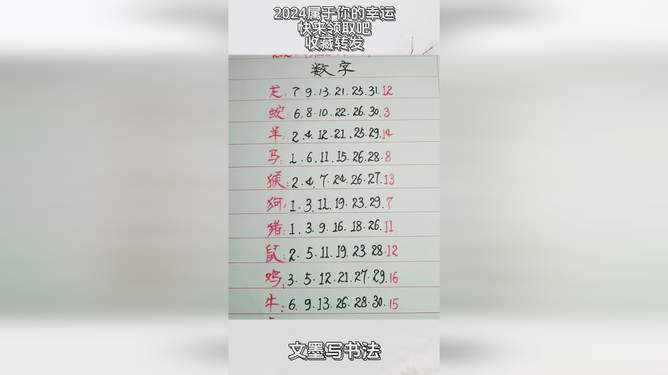 2024属于你的幸运
快来领取吧
收藏转发
数字
龙:7.9.13.21.25.31.12
蛇:6.8.10.22.26.30.3
羊:2.4.12.21.25.29.14
马:1.6.11.15.26.28.8
猴:2.4.7.24.26.27.13
狗:1.3.11.19.23.29.7
猪:1.3.9.16.18.26.11
鼠:2.5.11.19.23.28.12
鸡:3.5.12.21.27.29.16
牛:6.9.13.26.28.30.15
文墨写书法